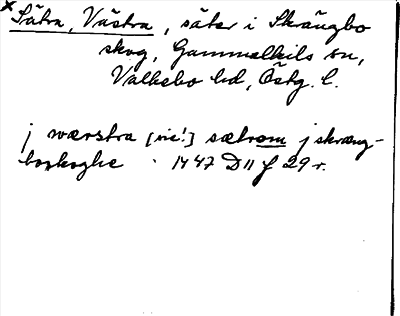 × Sätra, Västra, säter i Skrängbo
skog, Gammalkils sn,
Valkebo hd, Östg. l.
j wærstra [sic!] sætrom j skræng-
boskoghe 1447 D 11 f 29 r.